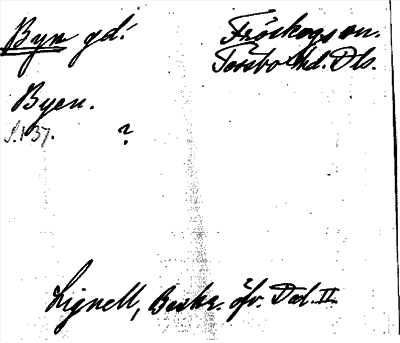 Byn gd:
Fröskogs sn.
Tössbo hd. Dls.
Byen.
S. 137.
?
Lignell, Beskr. öfv. Dal. II